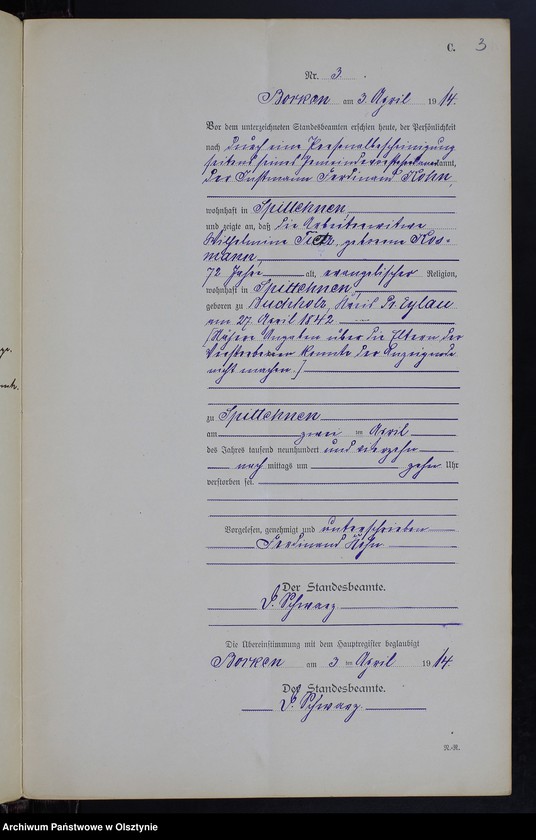 C. 3
Nr. 3.
Borken am 3. April 1914.
Vor dem unterzeichneten Standesbeamten erschien heute, der Persönlichkeit
nach durch eine Personalbescheinigung
seitens seines Gemeindevorstehers kannt,
der Instmann Ferdinand Kohn,
wohnhaft in Spittehnen,
und zeigte an, daß die Arbeiterwitwe
Wilhelmine geborene Kos-
mann,
72 Jahre alt, evangelischer Religion,
wohnhaft in Spittehnen,
geboren zu Buchholz, Kreis Pr. Eylau
am 27. April 1842
(Nähere Angaben über die Eltern der
Verstorbenen konnte der Anzeigende
nicht machen.)
zu Spittehnen
am zwei ten April
des Jahres tausend neunhundert und vierzehn
nach mittags um zehn Uhr
verstorben sei.
Vorgelesen, genehmigt und unterschrieben
Ferdinand
Der Standesbeamte.
Schwarz
Die Übereinstimmung mit dem Hauptregister beglaubigt
Borken am 3 ten April 1914.
Der Standesbeamte.
Schwarz.
Archiwum Państwowe w Olsztynie